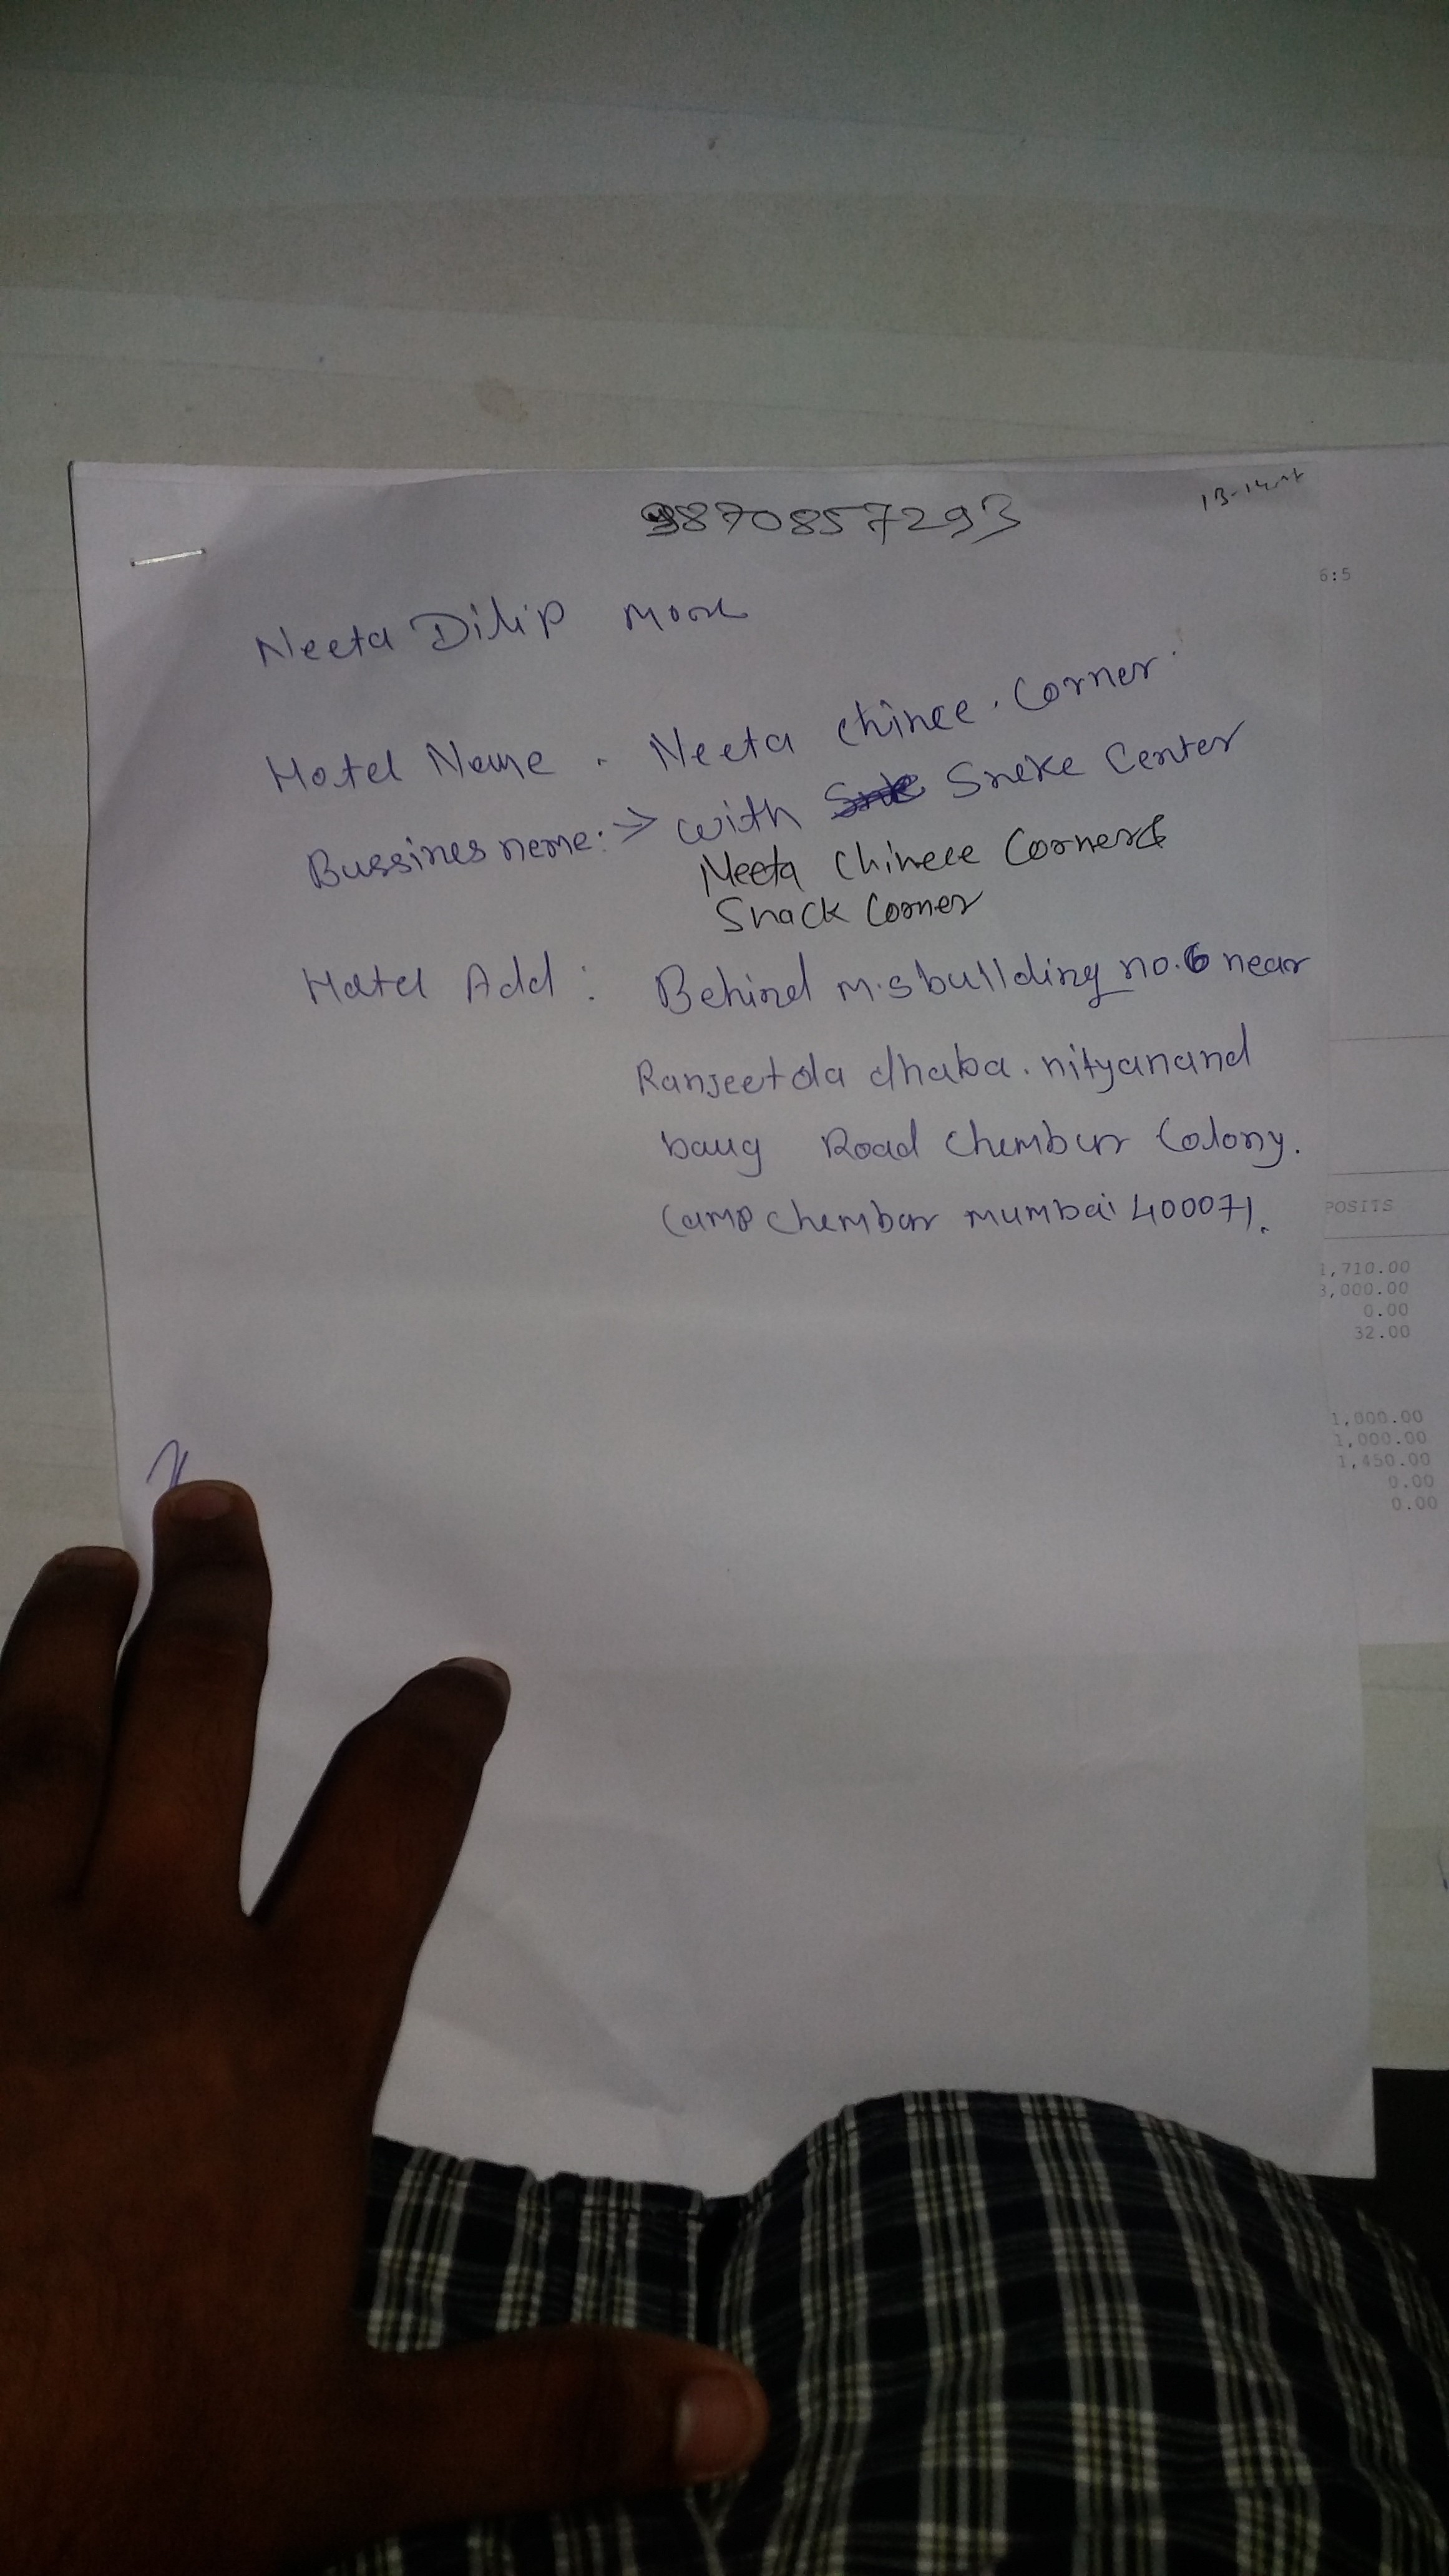 9870857293
6:5
Neeta Dilip More
Hotel Name . Neeta chinee . Corner .
Bussines neme: -> with Sneke Center
Neeta Chinese Corner &
Snack Corner
Hotel Add : Behind M.S bullding no.6 near
Ranjeet da dhaba . nityanand
baug Road Chembur Colony.
Camp Chembur mumbai 400071.
POSITS
1,710.00
3,000.00
0.00
32.00
1,000.00
1,000.00
1,450.00
0.00
0.00